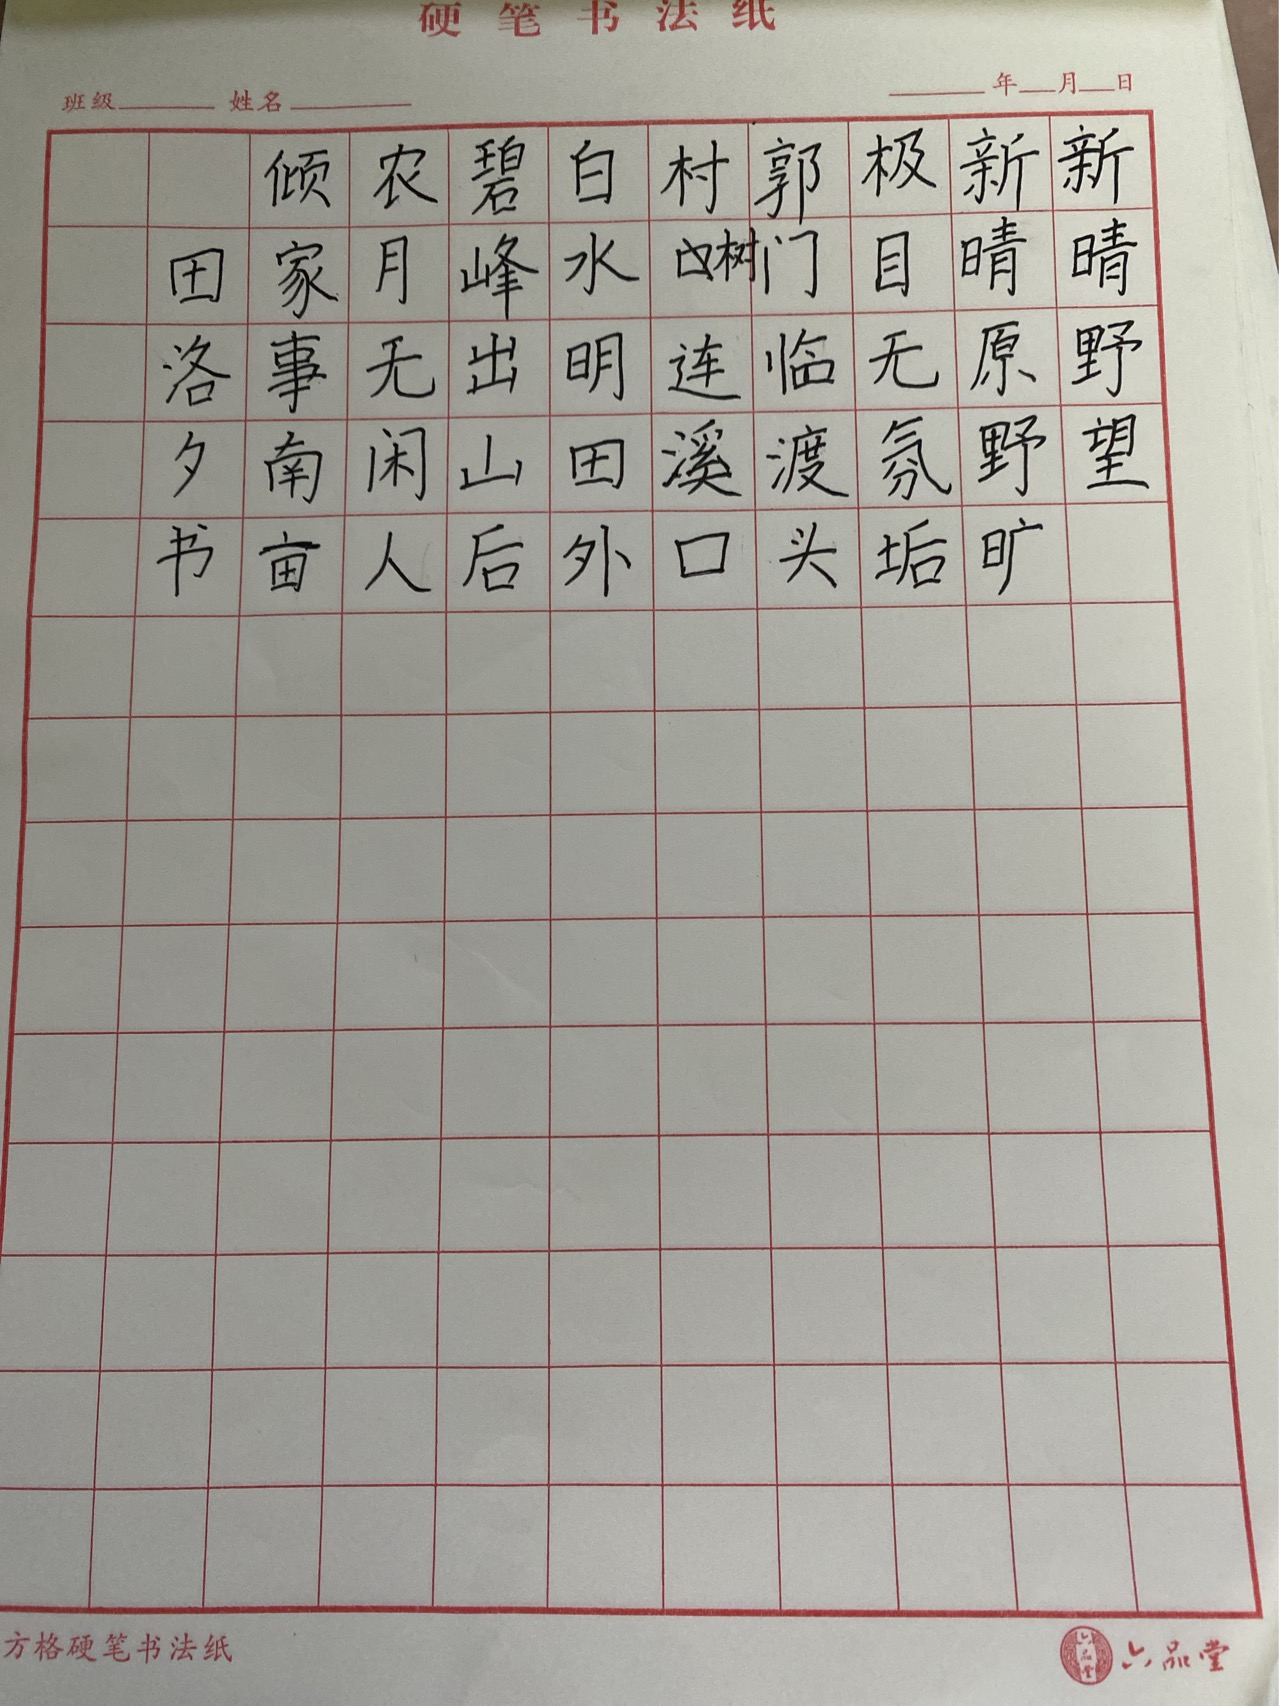 硬笔书法纸
班级 姓名 年 月 日
新晴野望
新晴原野旷
极目无氛垢
郭门临渡头
村树连溪口
白水明田外
碧峰出山后
农月无闲人
倾家事南亩
田洛夕书
方格硬笔书法纸
六品堂
六品堂